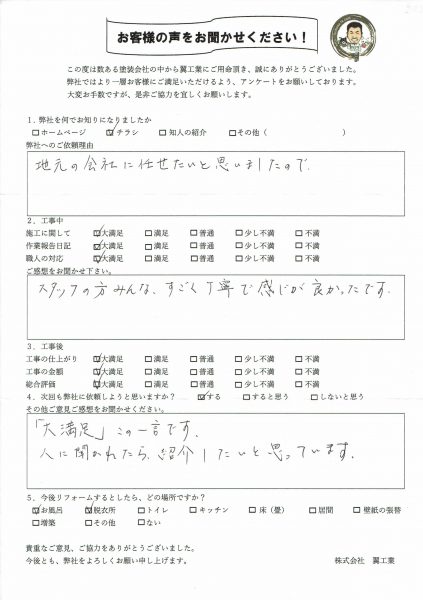 お客様の声をお聞かせください！
この度は数ある塗装会社の中から翼工業にご用命頂き、誠にありがとうございました。
弊社ではより一層お客様にご満足いただけるよう、アンケートをお願いしております。
大変お手数ですが、是非ご協力を宜しくお願いします。
1．弊社を何でお知りになりましたか
□ホームページ ☑チラシ □知人の紹介 □その他（ ）
弊社へのご依頼理由
地元の会社に任せたいと思いましたので。
2．工事中
施工に関して ☑大満足 □満足 □普通 □少し不満 □不満
作業報告日記 ☑大満足 □満足 □普通 □少し不満 □不満
職人の対応 ☑大満足 □満足 □普通 □少し不満 □不満
ご感想をお聞かせ下さい。
スタッフの方みんな、すごく丁寧で感じが良かったです。
3．工事後
工事の仕上がり ☑大満足 □満足 □普通 □少し不満 □不満
工事の金額 ☑大満足 □満足 □普通 □少し不満 □不満
総合評価 ☑大満足 □満足 □普通 □少し不満 □不満
4．次回も弊社に依頼しようと思いますか？ ☑する □すると思う □しないと思う
その他ご意見ご感想をお聞かせください。
「大満足」この一言です。
人に聞かれたら、紹介したいと思っています。
5．今後リフォームするとしたら、どの場所ですか？
☑お風呂 ☑脱衣所 □トイレ □キッチン □床（畳） □居間 □壁紙の張替
□増築 □その他 □ない
貴重なご意見、ご協力をありがとうございました。
今後とも、弊社をよろしくお願い申し上げます。 株式会社 翼工業